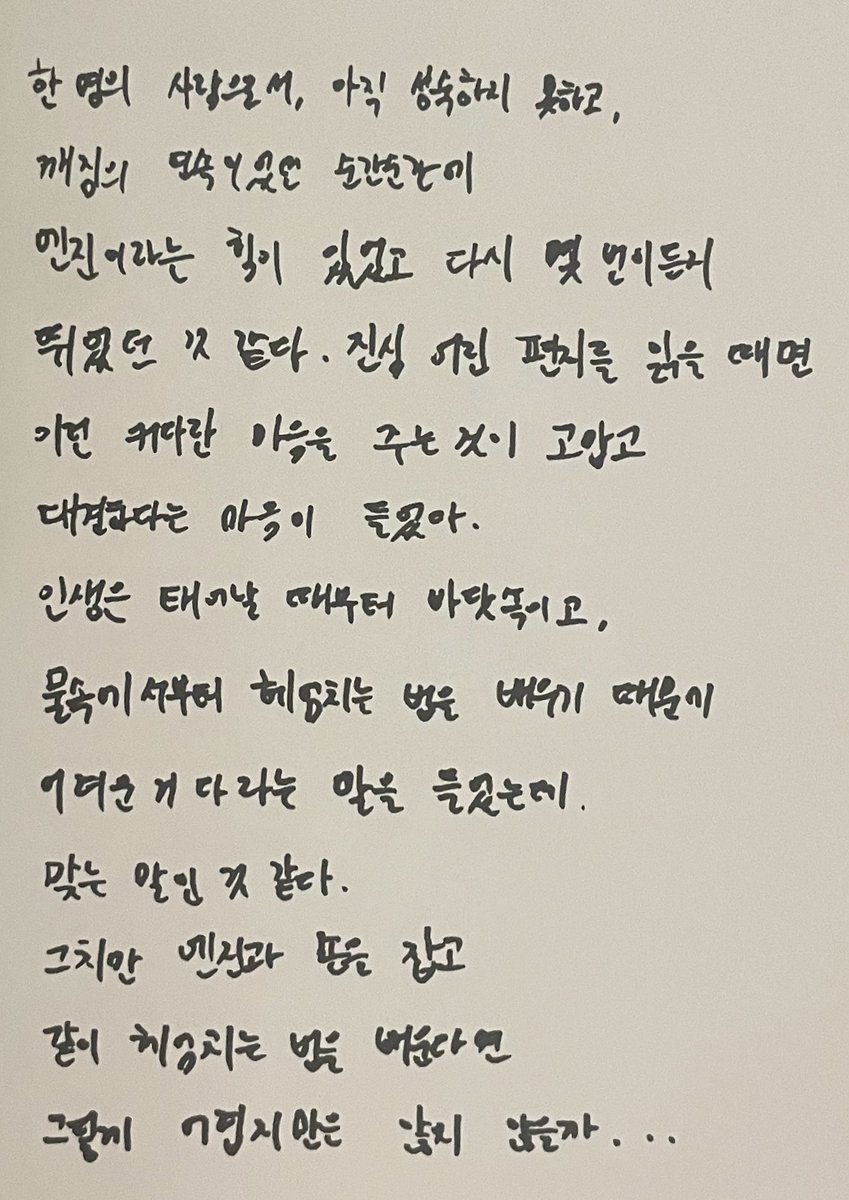 한 명의 사람으로서, 아직 성숙하지 못하고,
깨짐의 연속이었던 순간순간에
엔진이라는 힘이 있었고 다시 몇 번이든지
뛰었던 것 같다. 진심 어린 편지를 읽을 때면
이런 커다란 마음을 주는 것이 고맙고
대견하다는 마음이 들었어.
인생은 태어날 때부터 바닷속이고,
물속에서부터 헤엄치는 법을 배우기 때문에
어려운 거다라는 말을 들었는데.
맞는 말인 것 같다.
그치만 엔진과 손을 잡고
같이 헤엄치는 법을 배운다면
그렇게 어렵지만은 않지 않을까...